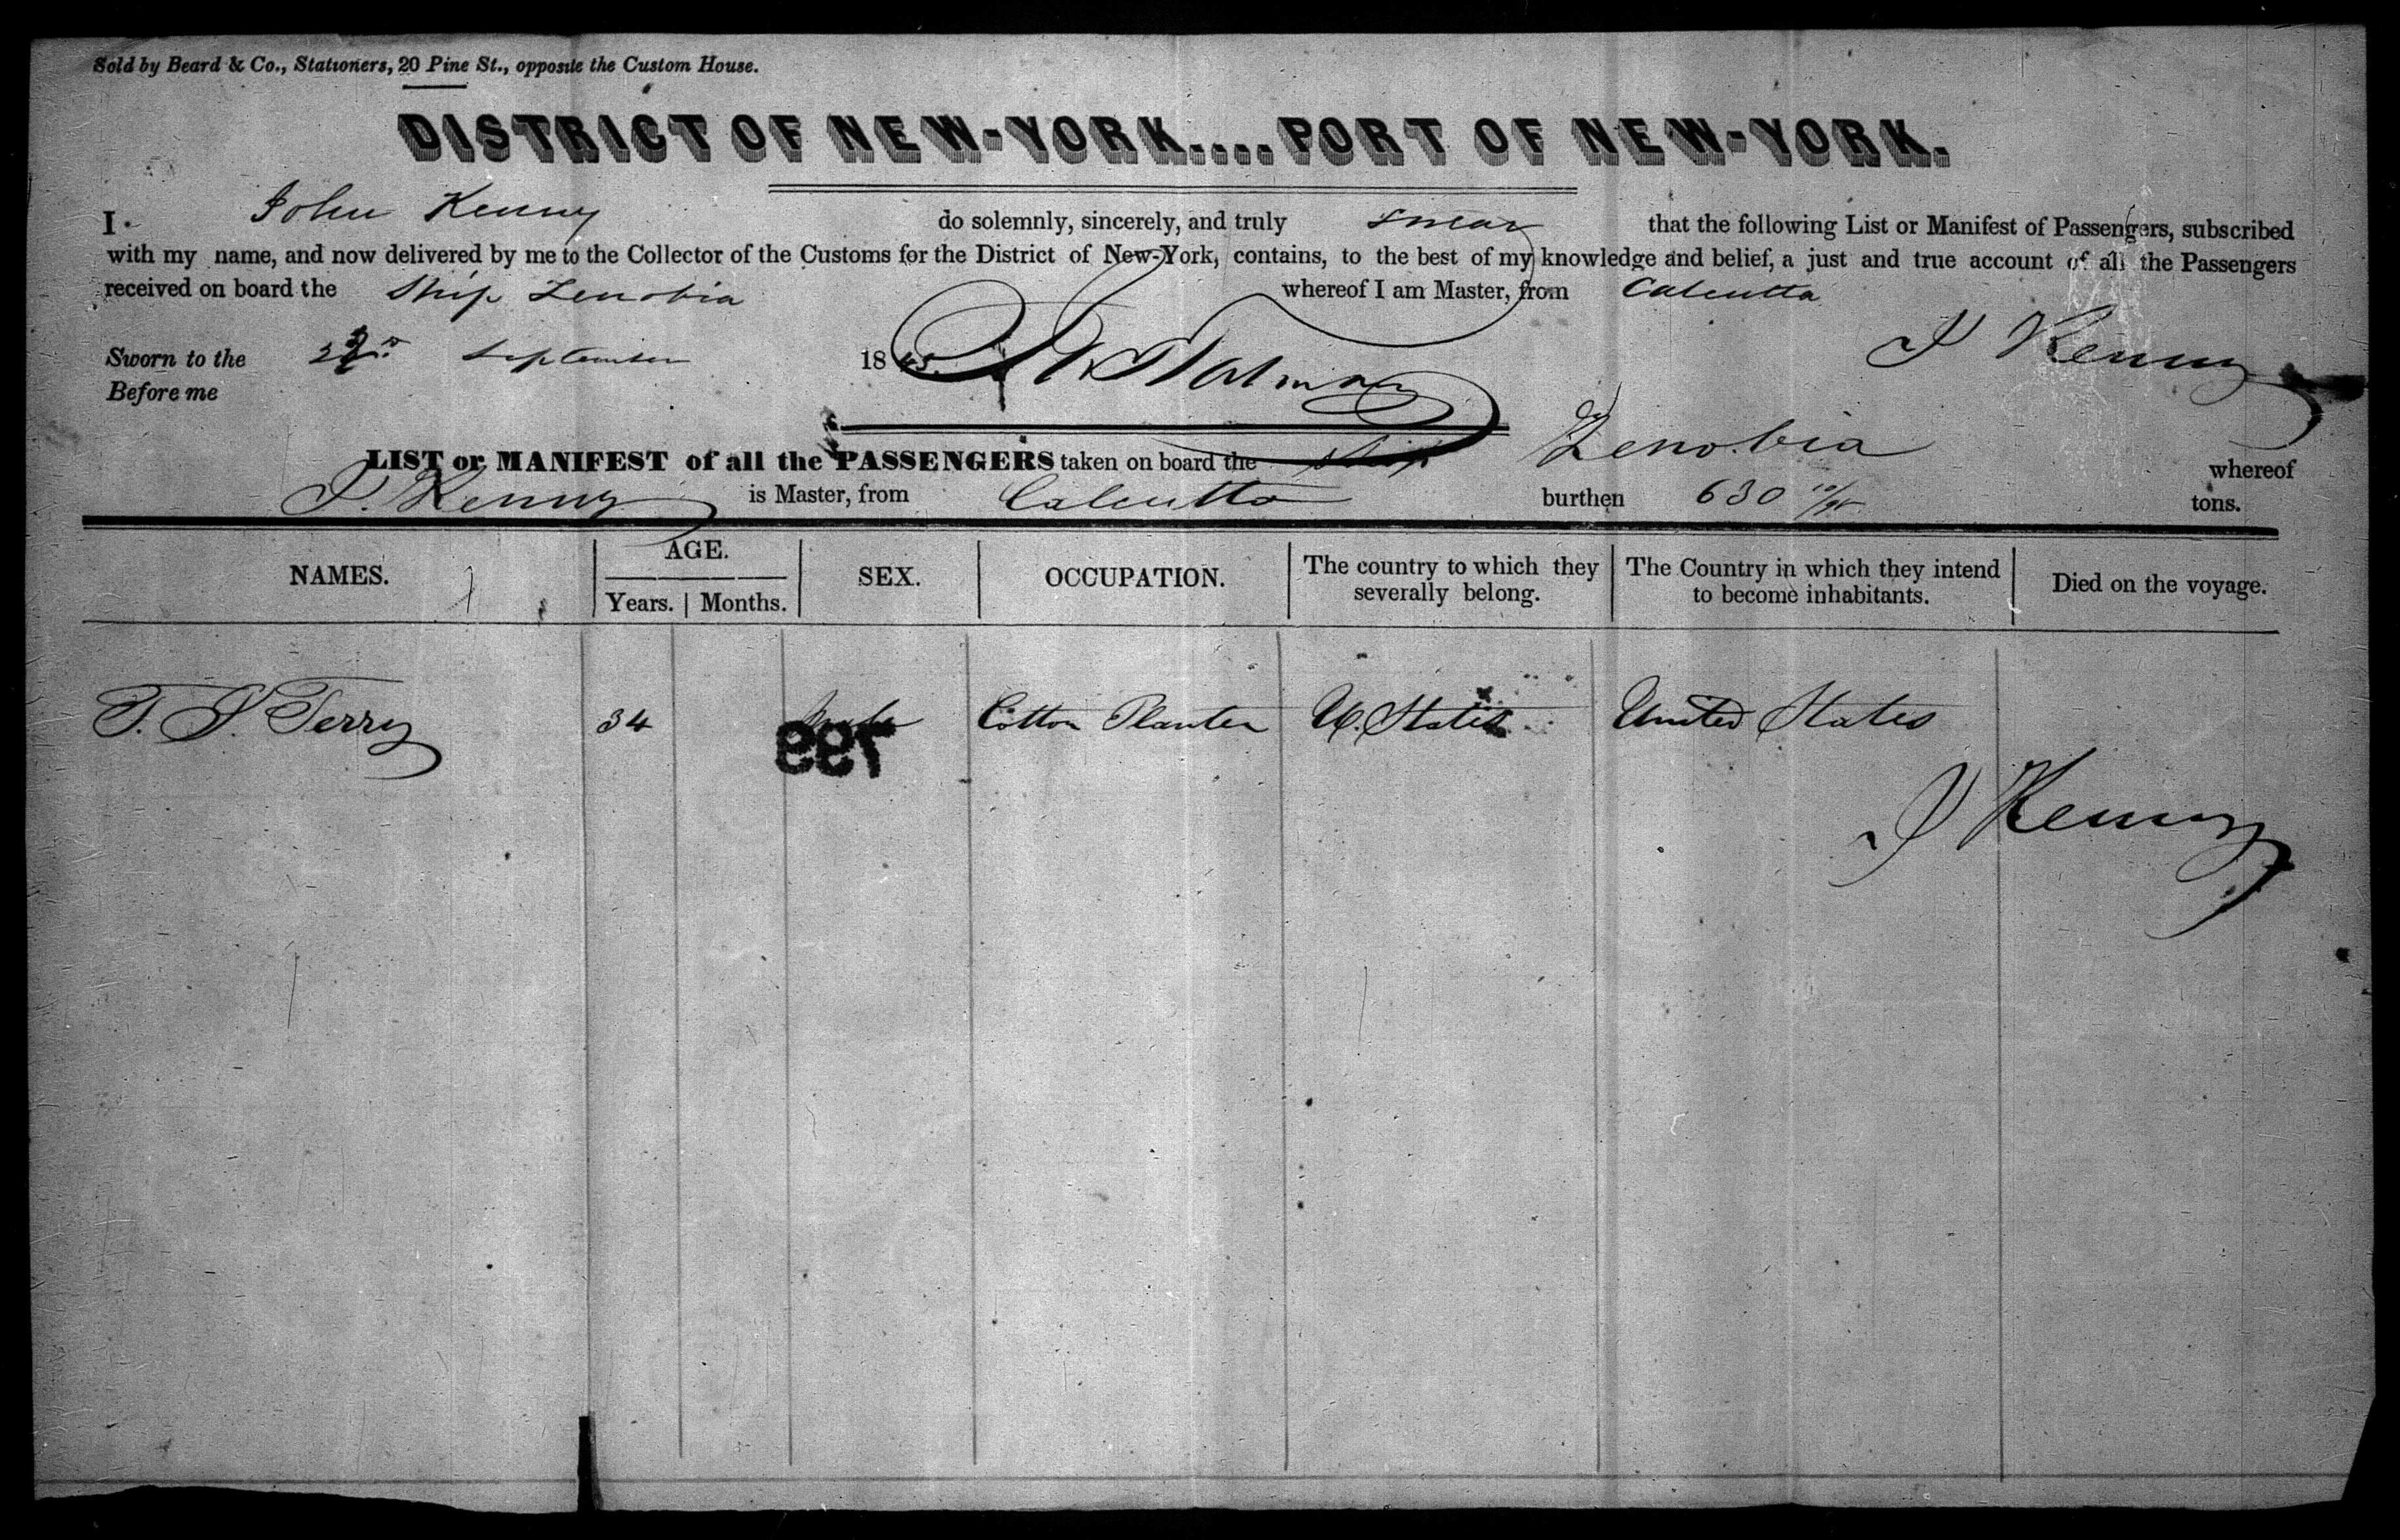 Sold by Beard & Co., Stationers, 20 Pine St., opposite the Custom House.
DISTRICT OF NEW-YORK....PORT OF NEW-YORK.
I John Kenny do solemnly, sincerely, and truly swear that the following List or Manifest of Passengers, subscribed
with my name, and now delivered by me to the Collector of the Customs for the District of New-York, contains, to the best of my knowledge and belief, a just and true account of all the Passengers
received on board the Ship Zenobia whereof I am Master, from Calcutta
Sworn to the September 1845. J Kenny
Before me
LIST or MANIFEST of all the PASSENGERS taken on board the Ship Zenobia whereof
J. Kenny is Master, from Calcutta burthen 630 tons.
NAMES. AGE. SEX. OCCUPATION. The country to which they severally belong. The Country in which they intend to become inhabitants. Died on the voyage.
Years. Months.
T. S. Terry 34 Cotton Planter U. States United States
199
J Kenny